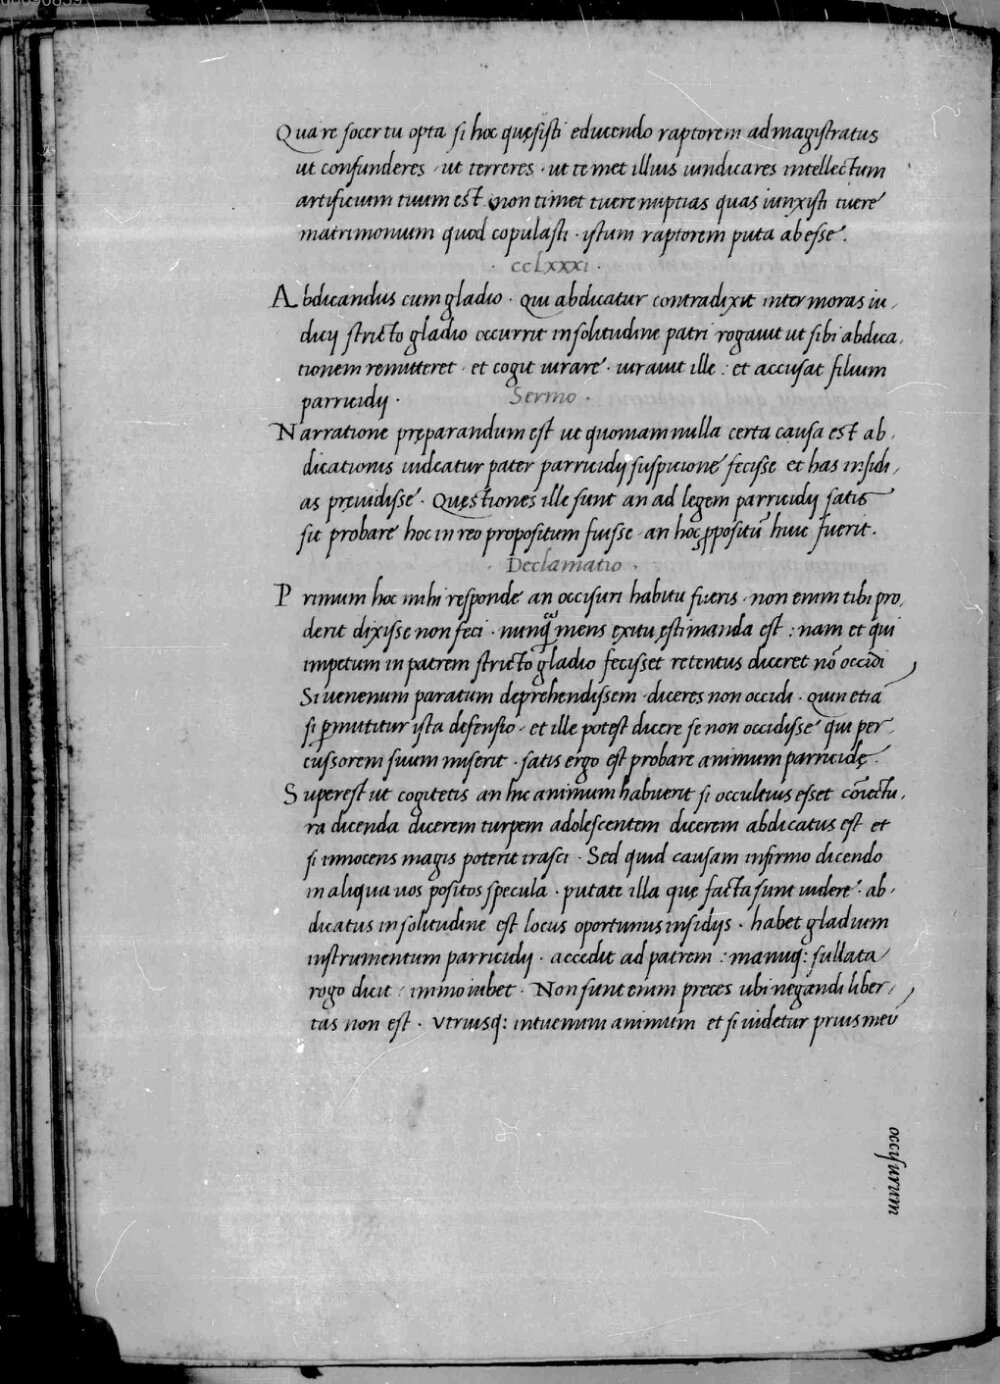 Quare socer tu opta si hoc quęsisti educendo raptorem ad magistratus
ut confunderes · ut terreres · ut temet illius uindicares intellectum
artificium tuum est non timet tuere nuptias quas iunxisti tuere
matrimonium quod copulasti · istum raptorem puta abesse.
· ccLxxxi ·
Abdicandus cum gladio · Qui abdicatur contradixit inter moras iu,
dicij stricto gladio occurrit in solitudine patri rogauit ut sibi abdica,
tionem remitteret · et cogit iurare · iurauit ille : et accusat filium
parricidij ·
Sermo ·
Narratione pręparandum est ut quoniam nulla certa causa est ab,
dicationis uideatur pater parricidij suspicione fecisse et has insidi,
as pręuidisse · Quęstiones ille sunt an ad legem parricidij satis
sit probare hoc in reo propositum fuisse · an hoc ꝓpositū huic fuerit.
· Declamatio ·
Primum hoc mihi responde an occisuri habitu fueris · non enim tibi pro,
derit dixisse non feci · nunq̃ mens exitu ęstimanda est : nam et qui
impetum in patrem stricto gladio fecisset retentus diceret nō occidi
Si uenenum paratum deprehendissem · diceres non occidi · Quin etiā
si ꝑmittitur ista defensio · et ille potest dicere se non occidisse qui per,
cussorem suum miserit · satis ergo est probare animum parricidę ·
Superest ut cogitetis an hic animum habuerit si occultius esset cōiectu,
ra dicenda dicerem turpem adolescentem dicerem abdicatus est et
si innocens magis poterit irasci · Sed quid causam infirmo dicendo
in aliqua uos positos specula · putate illa quę facta sunt uidere · ab,
dicatus in solitudine est locus oportunus insidijs · habet gladium
instrumentum parricidij · accedit ad patrem : manuq: sullata
rogo dicit / immo iubet · Non sunt enim preces ubi negandi liber,
tas non est · Vtriusq: intuenum animum et si uidetur prius meū
occisurum